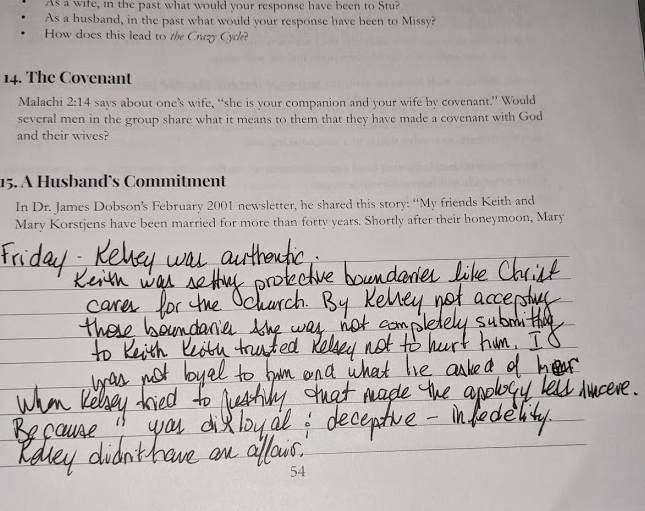 As a wife, in the past what would your response have been to Stu?
• As a husband, in the past what would your response have been to Missy?
• How does this lead to the Crazy Cycle?
14. The Covenant
Malachi 2:14 says about one's wife, "she is your companion and your wife by covenant." Would
several men in the group share what it means to them that they have made a covenant with God
and their wives?
15. A Husband's Commitment
In Dr. James Dobson's February 2001 newsletter, he shared this story: "My friends Keith and
Mary Korstjens have been married for more than forty years. Shortly after their honeymoon, Mary
Friday - Kelsey was authentic.
Keith was setting protective boundaries like Christ
cares for the church. By Kelsey not accepting
those boundaries she was not completely submitting
to Keith. Keith trusted Kelsey not to hurt him. I
was not loyal to him and what he asked of her
When Kelsey tried to justify that made the apology less sincere.
Because " was disloyal & deceptive - infedelity.
Kelsey didn't have an affair.
54